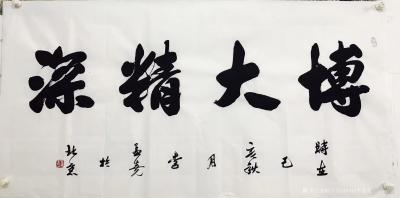 博大精深
時在己亥秋月李於北京